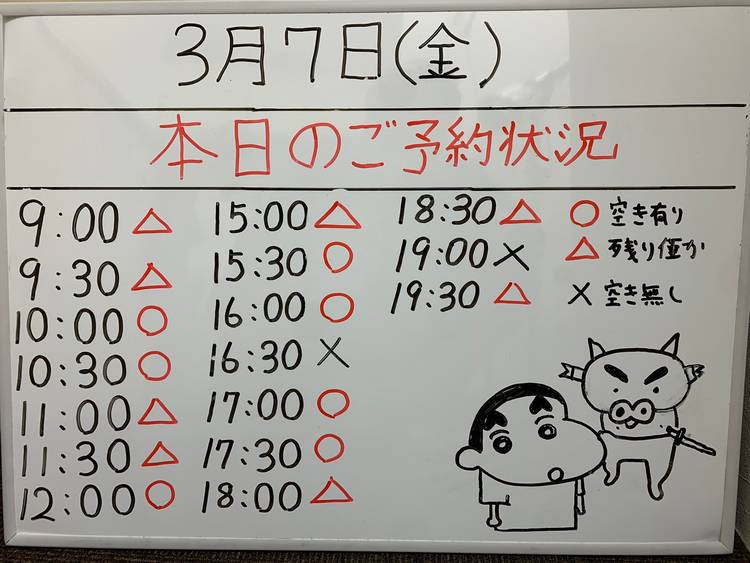 3月7日(金)
本日のご予約状況
9:00 △
9:30 △
10:00 ○
10:30 ○
11:00 △
11:30 △
12:00 ○
15:00 △
15:30 ○
16:00 ○
16:30 ×
17:00 ○
17:30 ○
18:00 △
18:30 △
19:00 ×
19:30 △
○ 空き有り
△ 残り僅か
× 空き無し